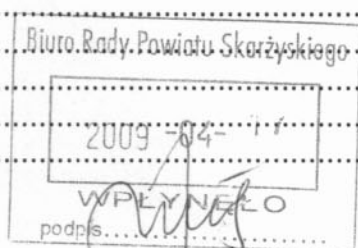 Biuro Rady Powiatu Skarżyskiego
2009 -04-
WPŁYNĘŁO
podpis